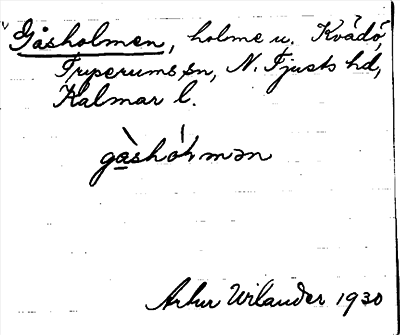 Gåsholmen, holme u. Kvädö,
Tryserums sn, N. Tjusts hd,
Kalmar l.
gàshólmən
Artur Wilander 1930